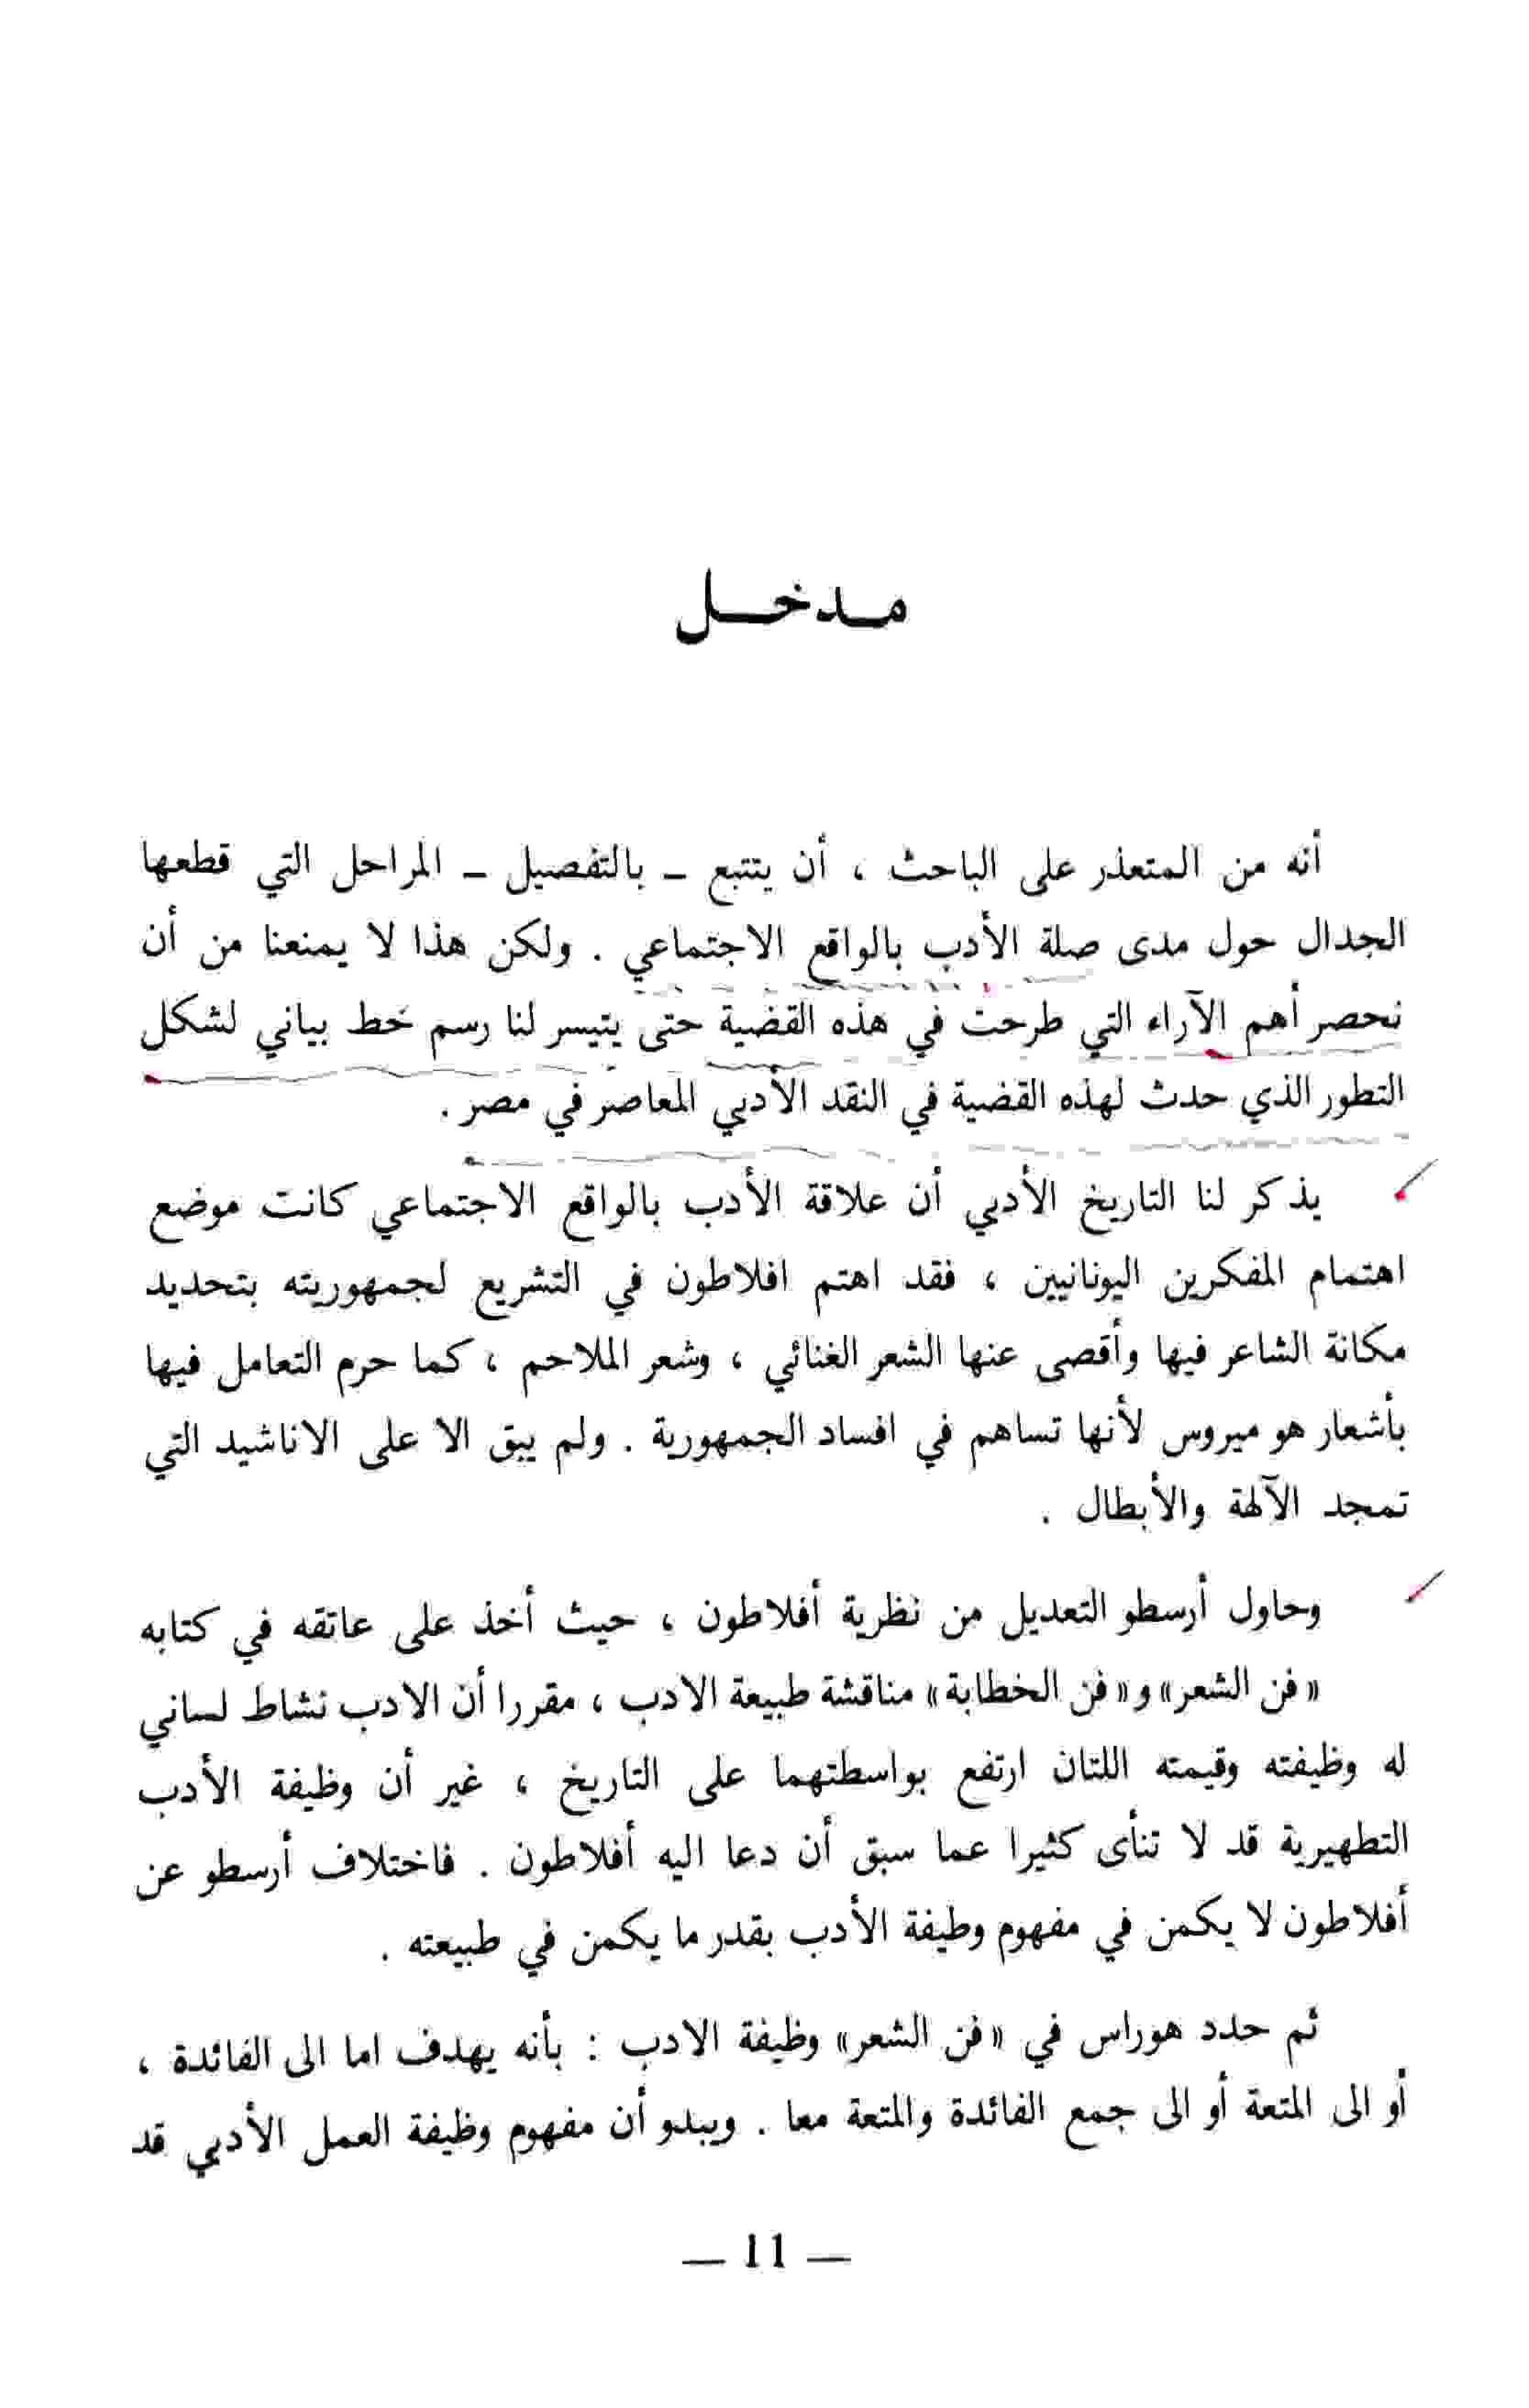 مدخل
أنه من المتعذر على الباحث ، أن يتتبع – بالتفصيل – المراحل التي قطعها
الجدال حول مدى صلة الأدب بالواقع الاجتماعي . ولكن هذا لا يمنعنا من أن
نحصر أهم الآراء التي طرحت في هذه القضية حتى يتيسر لنا رسم خط بياني لشكل
التطور الذي حدث لهذه القضية في النقد الأدبي المعاصر في مصر .
يذكر لنا التاريخ الأدبي أن علاقة الأدب بالواقع الاجتماعي كانت موضع
اهتمام المفكرين اليونانيين ، فقد اهتم افلاطون في التشريع لجمهوريته بتحديد
مكانة الشاعر فيها وأقصى عنها الشعر الغنائي ، وشعر الملاحم ، كما حرم التعامل فيها
بأشعار هو ميروس لأنها تساهم في افساد الجمهورية . ولم يبق الا على الاناشيد التي
تمجد الآلهة والأبطال .
وحاول أرسطو التعديل من نظرية أفلاطون ، حيث أخذ على عاتقه في كتابه
«فن الشعر» و«فن الخطابة» مناقشة طبيعة الادب ، مقررا أن الادب نشاط لساني
له وظيفته وقيمته اللتان ارتفع بواسطتهما على التاريخ ، غير أن وظيفة الأدب
التطهيرية قد لا تنأى كثيرا عما سبق أن دعا اليه أفلاطون . فاختلاف أرسطو عن
أفلاطون لا يكمن في مفهوم وظيفة الأدب بقدر ما يكمن في طبيعته .
ثم حدد هوراس في «فن الشعر» وظيفة الادب : بأنه يهدف اما الى الفائدة ،
أو الى المتعة أو الى جمع الفائدة والمتعة معا . ويبدو أن مفهوم وظيفة العمل الأدبي قد
— 11 —